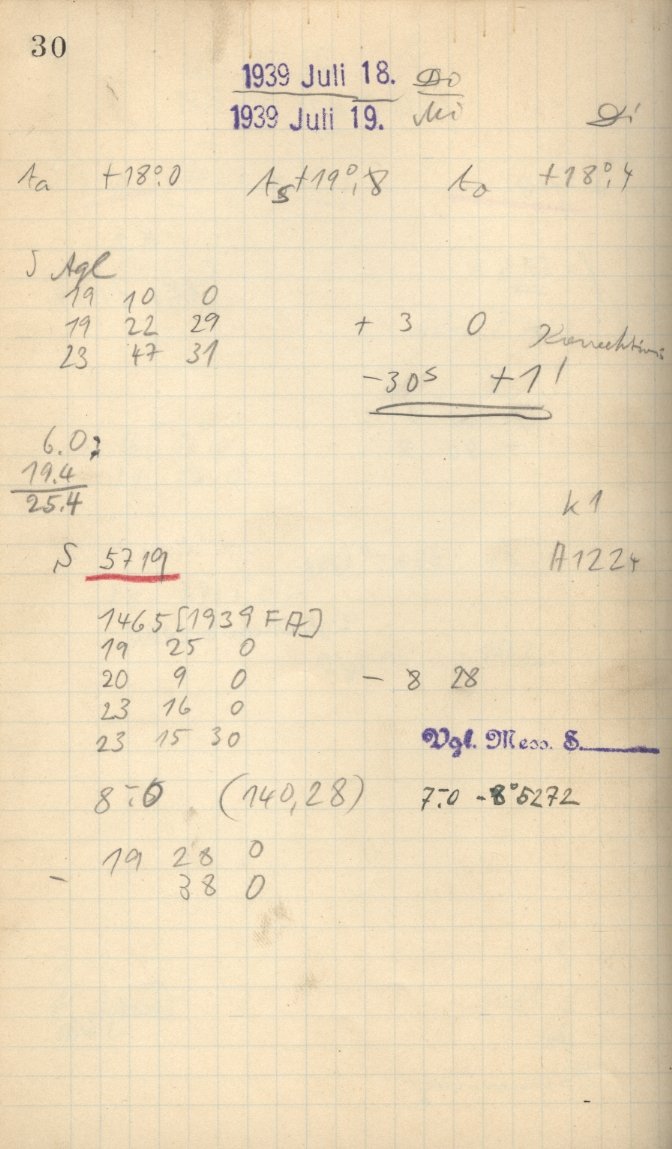 30
1939 Juli 18. Do
1939 Juli 19. Mi
Di
ta +18°.0 ts +19°,8 to +18°,4
S Agl
19 10 0
19 22 29 + 3 0
23 47 31
-30s +1'
6.0
19.4
25.4
k1
S 5719 A1224
1465 [1939 FA]
19 25 0
20 9 0 - 8 28
23 16 0
23 15 30 Vgl. Mess. S.
(140,28) 7.0 -8°5272
19 28 0
- 38 0